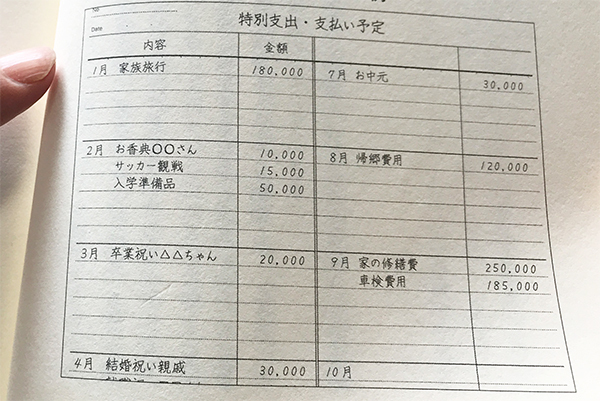 No.
特別支出・支払い予定
Date
内容 金額
1月 家族旅行 180,000
2月 お香典〇〇さん 10,000
サッカー観戦 15,000
入学準備品 50,000
3月 卒業祝い△△ちゃん 20,000
4月 結婚祝い親戚 30,000
7月 お中元 30,000
8月 帰郷費用 120,000
9月 家の修繕費 250,000
車検費用 185,000
10月